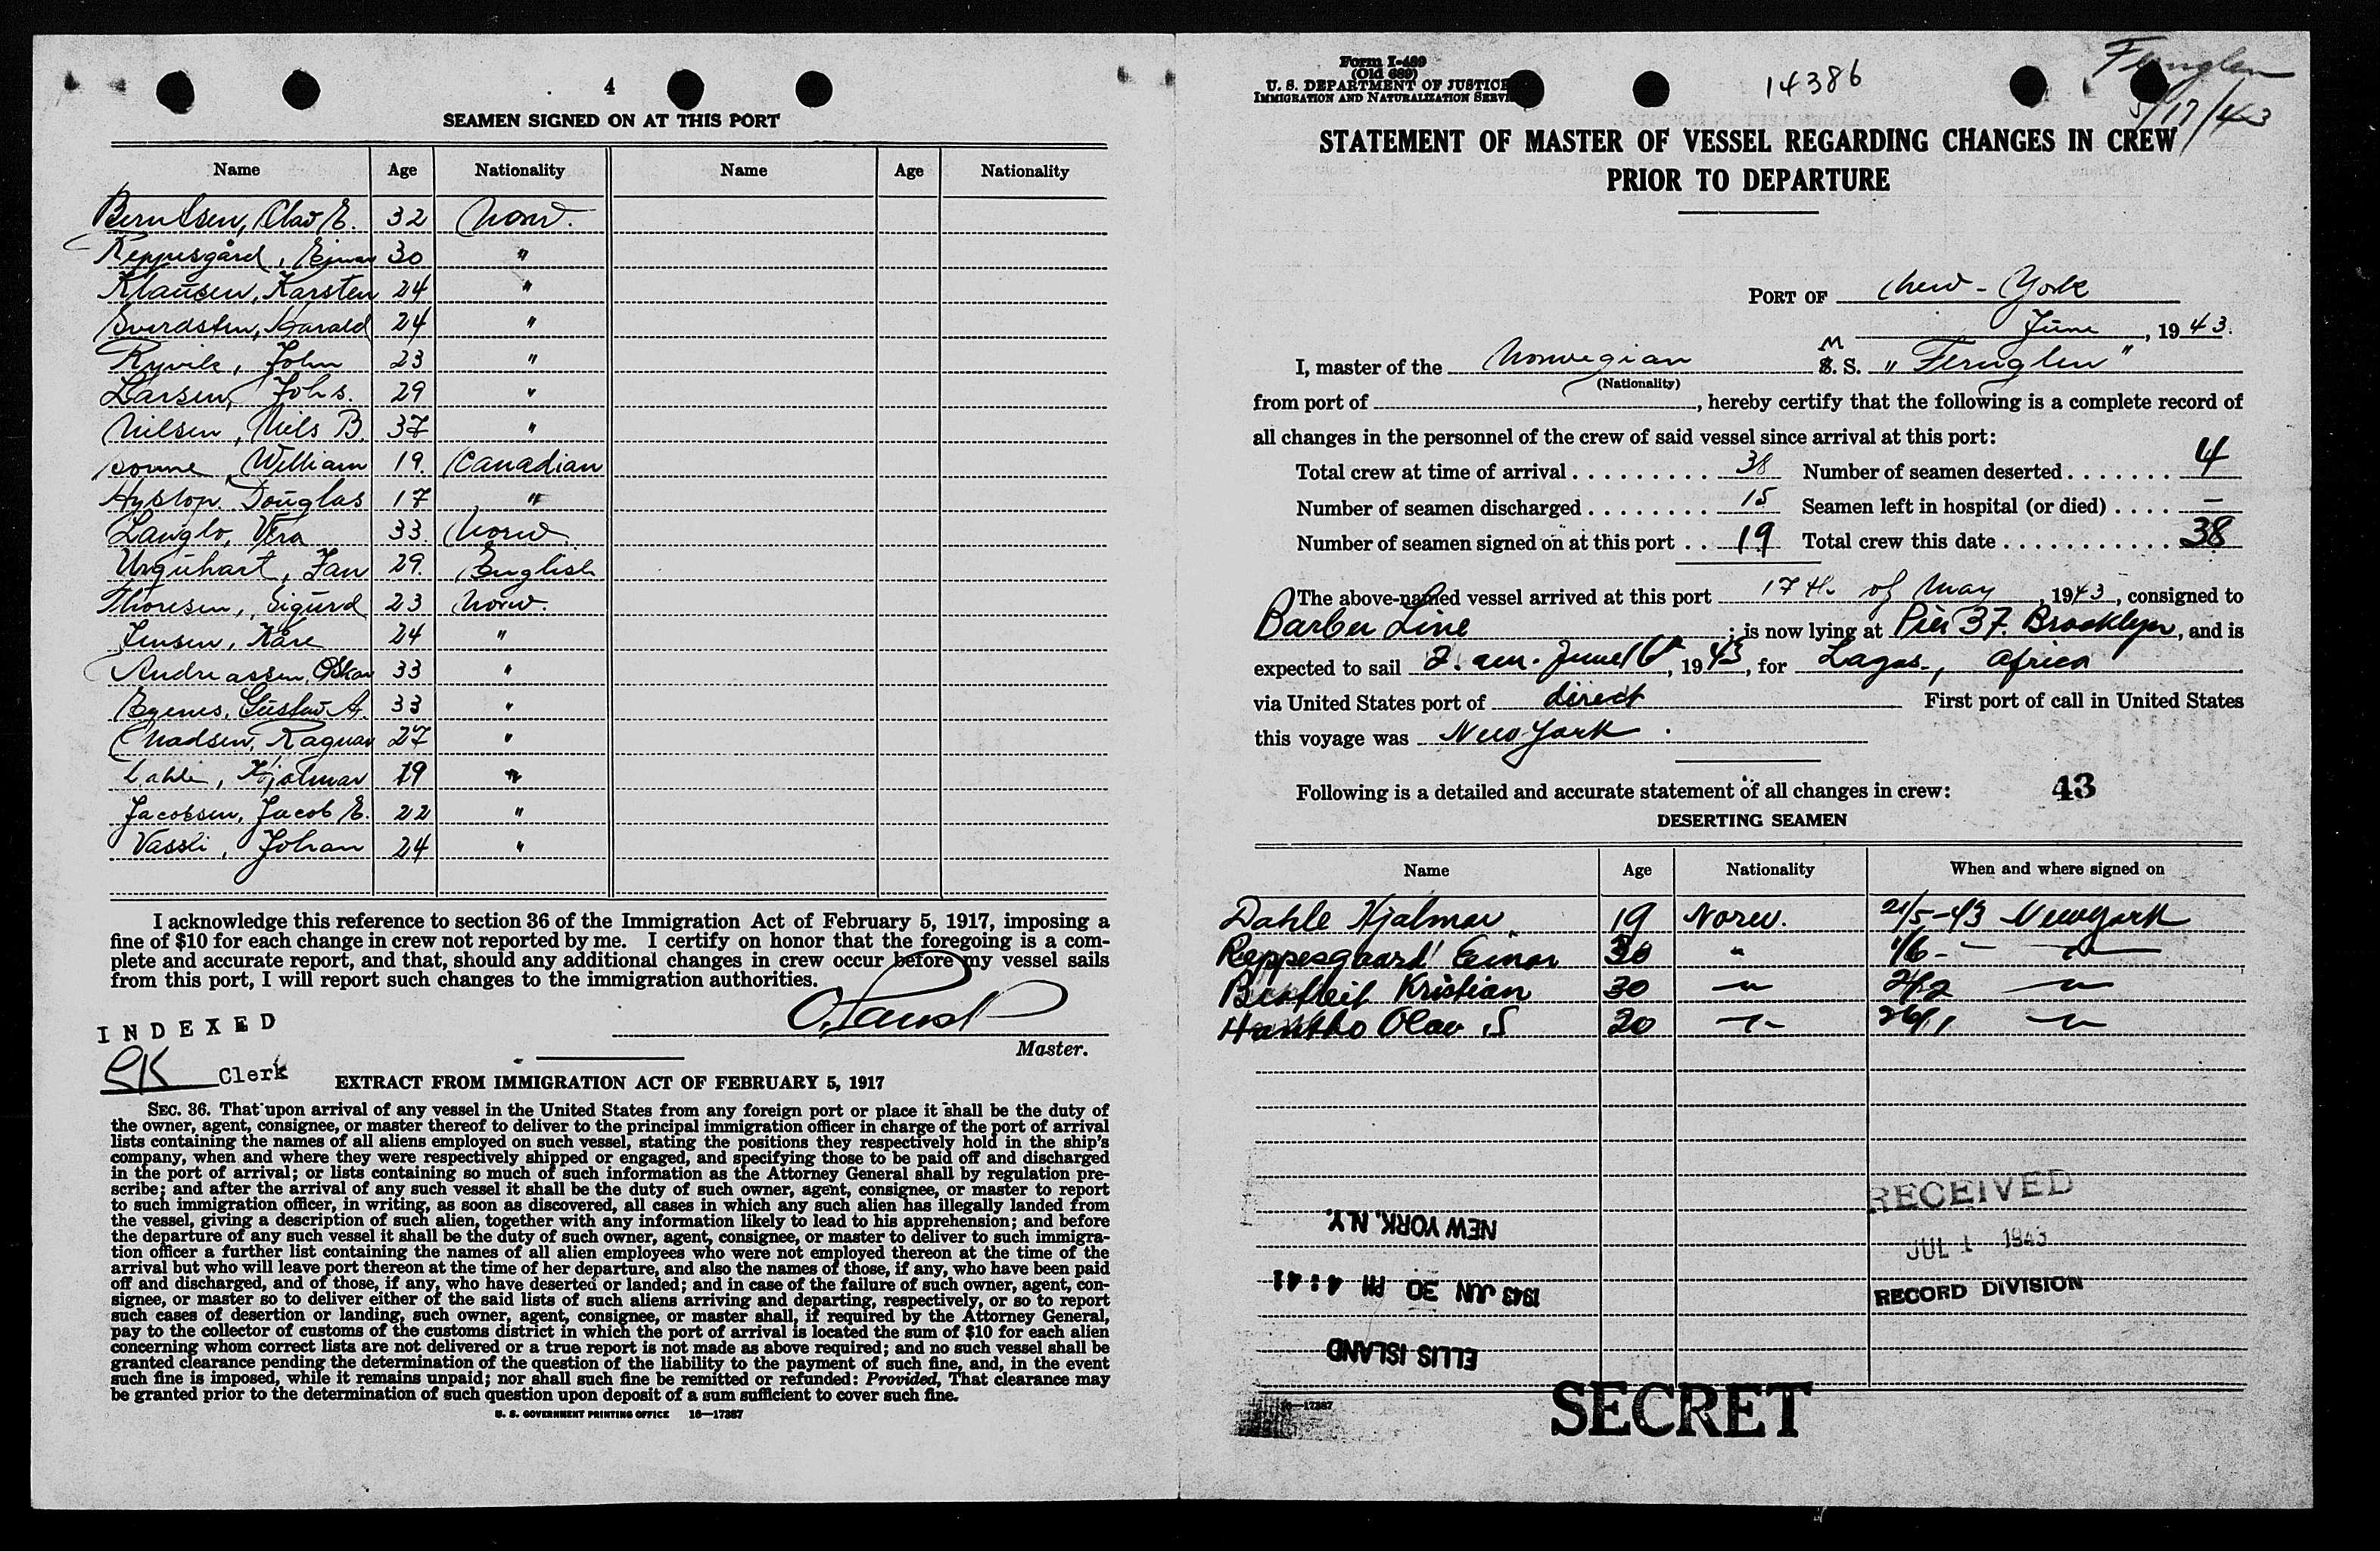 4
SEAMEN SIGNED ON AT THIS PORT
Name Age Nationality Name Age Nationality
Berntsen, Olav E. 32 Norw.
Reppesgård, Ejnar 30 "
Klausen, Karsten 24 "
Sverdsten, Harald 24 "
Ryvik, John 23 "
Larsen, Johs. 29 "
Nilsen, Niels B. 37 "
William 19. Canadian
Hyslop, Douglas 17 "
Langlo, Vera 33. Norw
Urquhart, Ian 29. English
Thoresen, Sigurd 23 Norw.
Jensen, Kåre 24 "
Andreassen, Oskar 33 "
Byenes, Gustav A. 33 "
Madsen, Ragnar 27 "
Dahle, Hjalmar 19 "
Jacobsen, Jacob E. 22 "
Vassli, Johan 24 "
I acknowledge this reference to section 36 of the Immigration Act of February 5, 1917, imposing a
fine of $10 for each change in crew not reported by me. I certify on honor that the foregoing is a com-
plete and accurate report, and that, should any additional changes in crew occur before my vessel sails
from this port, I will report such changes to the immigration authorities.
INDEXED
Master.
Clerk
EXTRACT FROM IMMIGRATION ACT OF FEBRUARY 5, 1917
SEC. 36. That upon arrival of any vessel in the United States from any foreign port or place it shall be the duty of
the owner, agent, consignee, or master thereof to deliver to the principal immigration officer in charge of the port of arrival
lists containing the names of all aliens employed on such vessel, stating the positions they respectively hold in the ship's
company, when and where they were respectively shipped or engaged, and specifying those to be paid off and discharged
in the port of arrival; or lists containing so much of such information as the Attorney General shall by regulation pre-
scribe; and after the arrival of any such vessel it shall be the duty of such owner, agent, consignee, or master to report
to such immigration officer, in writing, as soon as discovered, all cases in which any such alien has illegally landed from
the vessel, giving a description of such alien, together with any information likely to lead to his apprehension; and before
the departure of any such vessel it shall be the duty of such owner, agent, consignee, or master to deliver to such immigra-
tion officer a further list containing the names of all alien employees who were not employed thereon at the time of the
arrival but who will leave port thereon at the time of her departure, and also the names of those, if any, who have been paid
off and discharged, and of those, if any, who have deserted or landed; and in case of the failure of such owner, agent, con-
signee, or master so to deliver either of the said lists of such aliens arriving and departing, respectively, or so to report
such cases of desertion or landing, such owner, agent, consignee, or master shall, if required by the Attorney General,
pay to the collector of customs of the customs district in which the port of arrival is located the sum of $10 for each alien
concerning whom correct lists are not delivered or a true report is not made as above required; and no such vessel shall be
granted clearance pending the determination of the question of the liability to the payment of such fine, and, in the event
such fine is imposed, while it remains unpaid; nor shall such fine be remitted or refunded: Provided, That clearance may
be granted prior to the determination of such question upon deposit of a sum sufficient to cover such fine.
U. S. GOVERNMENT PRINTING OFFICE 16—17387
Form I-489
(Old 689)
U. S. DEPARTMENT OF JUSTICE
IMMIGRATION AND NATURALIZATION SERVI
14386
Fernglen
5/17/43
STATEMENT OF MASTER OF VESSEL REGARDING CHANGES IN CREW
PRIOR TO DEPARTURE
PORT OF New-York
June, 1943.
I, master of the Norwegian M S. S. "Fernglen"
(Nationality)
from port of , hereby certify that the following is a complete record of
all changes in the personnel of the crew of said vessel since arrival at this port:
Total crew at time of arrival 38 Number of seamen deserted 4
Number of seamen discharged 15 Seamen left in hospital (or died) —
Number of seamen signed on at this port 19 Total crew this date 38
The above-named vessel arrived at this port 17th. of May, 1943, consigned to
Barber Line ; is now lying at Pier 37. Brooklyn, and is
expected to sail 2. am. June 16th, 1943, for Lagos, Africa
via United States port of direct First port of call in United States
this voyage was New York.
Following is a detailed and accurate statement of all changes in crew: 43
DESERTING SEAMEN
Name Age Nationality When and where signed on
Dahle Hjalmar 19 Norw. 21/5-43 New York
Reppesgaard Einar 30 " 1/6 - "
Kristian 30 " 2/12 "
Olav S 20 " 26/1 "
RECEIVED
NEW YORK, N.Y.
JUL 1 1943
1943 JUN 30 PM 4:41
RECORD DIVISION
ELLIS ISLAND
SECRET
16—17387